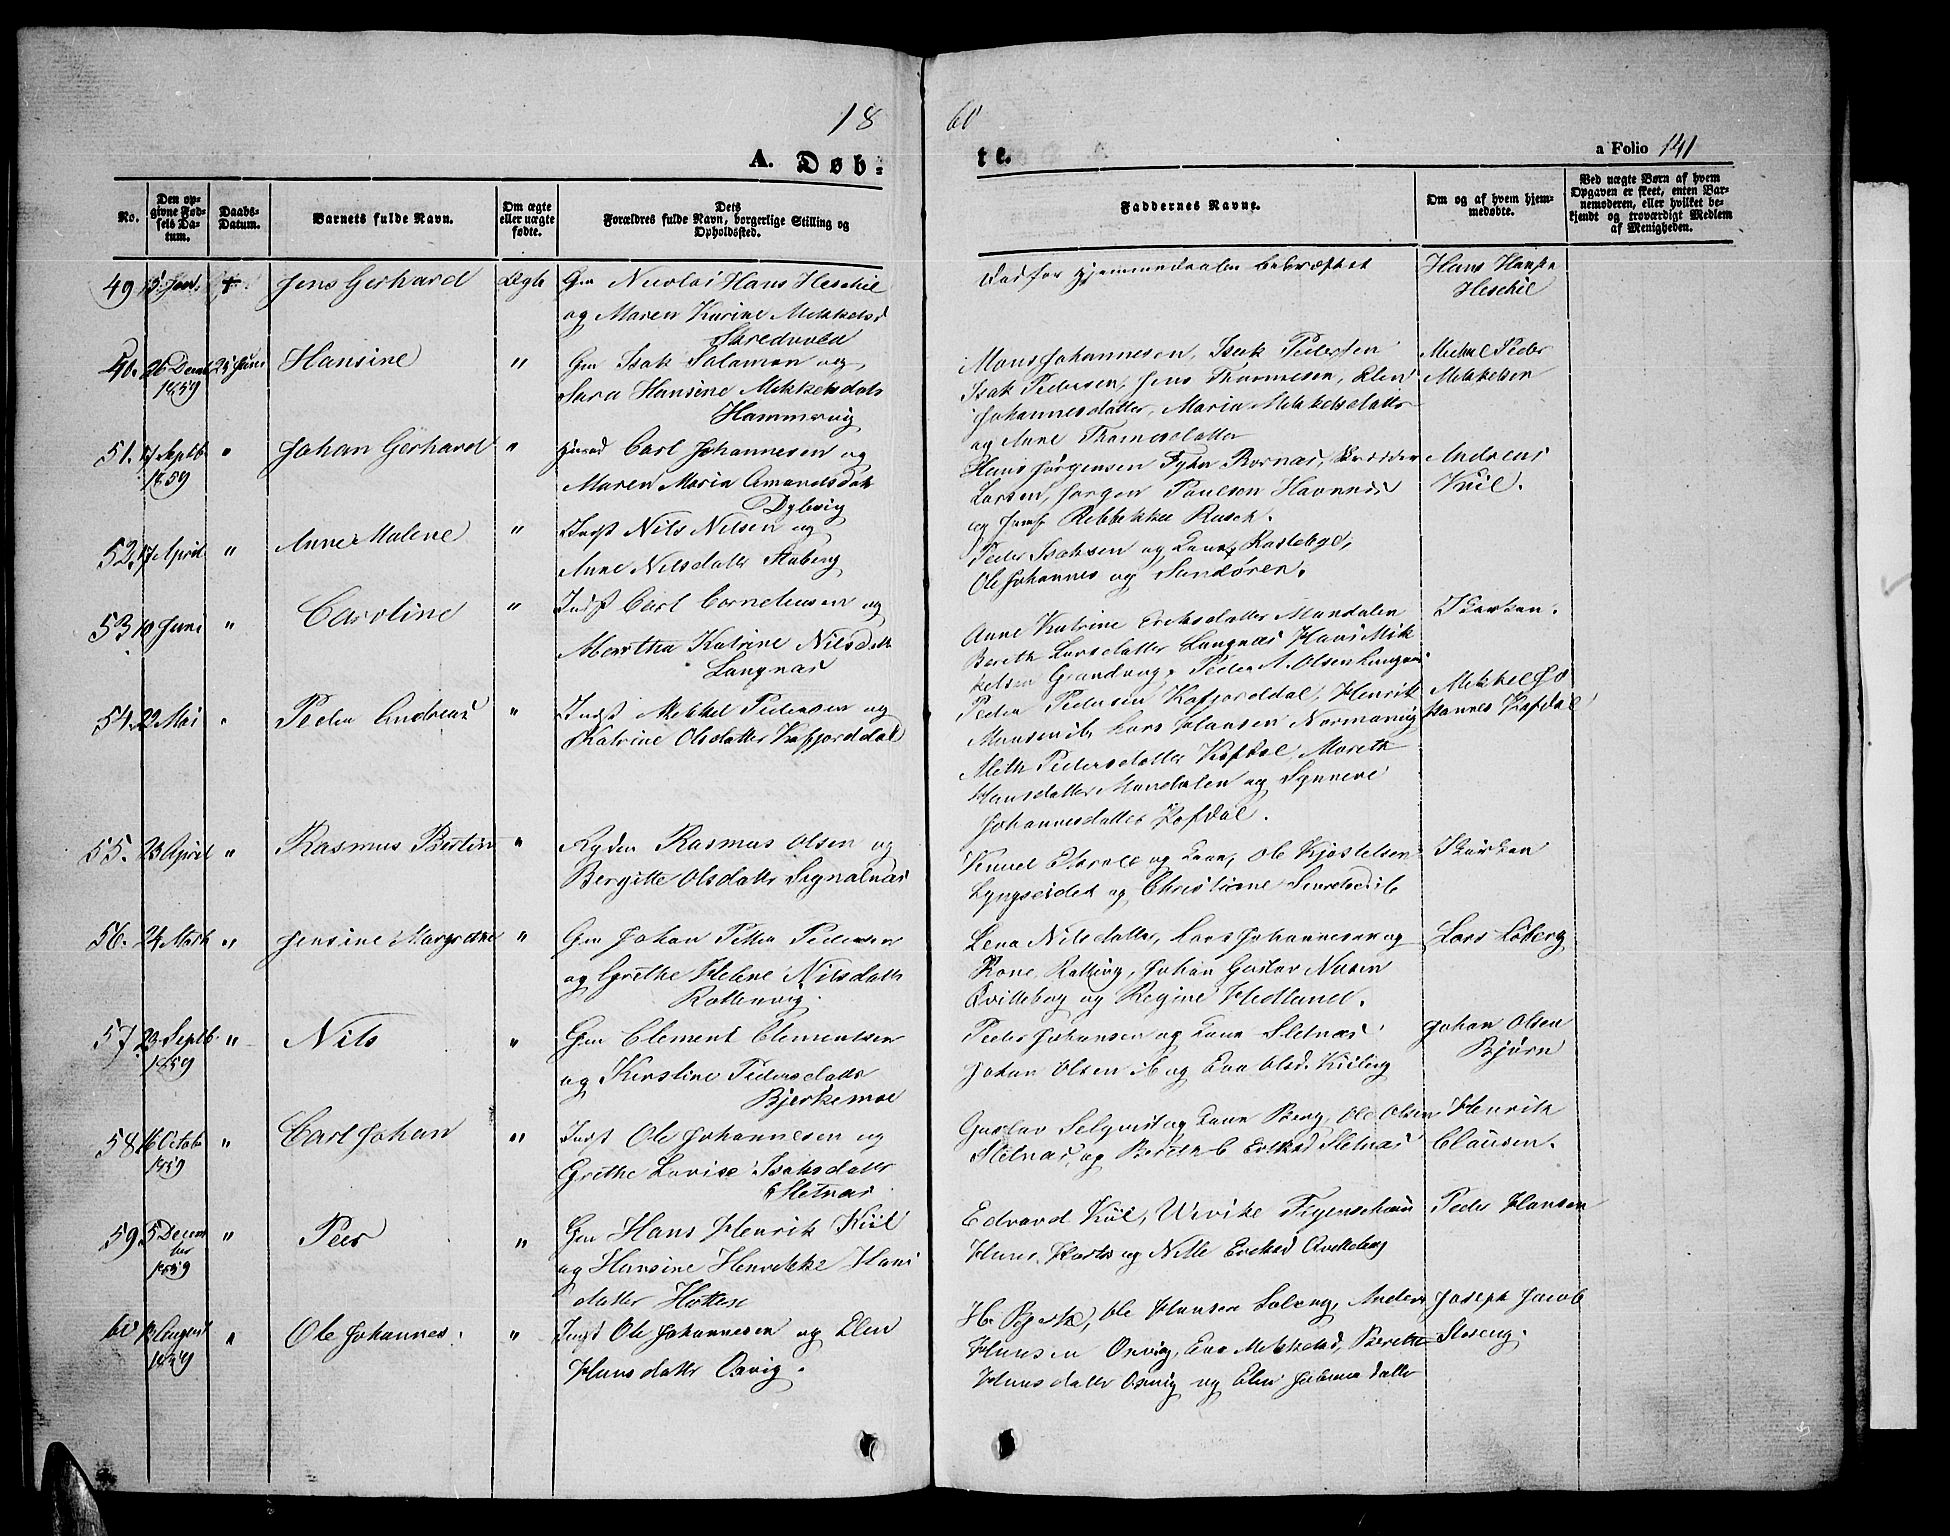 18 60
A. Døb- te.
a Folio 141
No.
Den op-
givne Fød-
sels Da-
tum.
Daabs-
Datum.
Barnets fulde Navn.
Om ægte
eller uægte
fødte.
Dets
Forældres fulde Navn, borgerlige Stilling og
Opholdssted.
Faddernes Navne.
Om og af hvem hjem-
medøbte.
Ved uægte Børn af hvem
Opgaven er skeet, enten Bar-
nemoderen, eller hvilket be-
kjendt og troværdigt Medlem
af Menigheden.
49 Jens Gerhard Ægte Gm Nicolai Hans Heschil
og Maren Karine Mikkelsd
Skredvold
hjemmedaaben bekræftet
Hans Hansen
Heschil
50. 26 Decmb 1859 25 Juni Hansine " Gm Isak Salamon og
Sara Hansine Mikkelsdatr
Hammervig
Mons Johannesen, Isak Pedersen
Isak Pedersen, Jens Thomesen, Elen
Johannesdatter, Maria Mikkelsdatter
og Anne Thomesdatter
Mikkel Peder
Mikkelsen
51. 17 Septb 1859 " Johan Gerhard " Carl Johannesen og
Maren Maria Amundsdatr
Dybvig
Hans Jørgensen
Larsen, Jørgen Paulsen Havnnæs
og Jomf Rebekka Rasch.
Andreas
Kiil.
52. 17 April " Anne Malene " Indst Nils Nilsen og
Anne Nilsdatter Aaberg
Peder Isaksen og Kone, Kastebye,
Ole Johannes og Sandøren.
53 10 Juni " Caroline " Indst Carl Corneliusen og
Merrtha Katrine Nilsdatt
Langnæs
Anne Katrine Eriksdatter Mandalen
Bereth Larsdatter Langnæs Hans Mik
kelsen Grandvig, Peder A. Olsen Langnæs
Skarkan.
54. 22 Mai " Peder Andreas " Indst Mikkel Pedersen og
Katrine Olsdatter Kafjorddal
Peder Pedersen Kafjorddal, Henrik
Monsen ib, Lars Hansen Normanvig
Aleth Pedersdatter Kafdal, Mareth
Hansdatter Mandalen og Synneve
Johannesdatter Kafdal.
Mikkel Jo
hannes Kafdal
55. 23 April " Rasmus Bertin " Ryden Rasmus Olsen og
Bergitte Olsdatter Signalnæs
Knud og Kone, Ole Kjøstelsen
Lyngseidet og Christiane Sivertsd ib
Skarkan
56. 24 Marts " Jensine Margrethe " Gm Johan Petter Pedersen
og Grethe Helene Nilsdatter
Rottenvig.
Lena Nilsdatter, Lars Johannesen og
Kone, Rottvig, Johan Gustav Nilsen
Qvitteberg og Regine Hedlund.
Lars Løberg
57 29 Septb 1859 " Nils " Gm Clement Clementsen
og Kirstine Pedersdatter
Bjerkemoe
Peder Johansen og Kone Sletnæs
Johan Olsen ib og Ena Olsd. Kiilvig
Johan Olsen
Bjørn
58 16 Octob 1859 " Carl Johan " Indst Ole Johannesen og
Grethe Lovise Isaksdatter
Sletnæs
Gustav Selqvist og Kone Berg, Ole Olsen
Sletnæs, og Berith C Eriksd Sletnæs
Henrik
Clausen.
59. 5 Decem
ber 1859 " Peer " Gm Hans Henrik Kiil
og Hansine Henrikke Hans
datter
Edvard Kiil, Ulrike Figenschau
Hans og Nille Eriksd Qvitteberg
Peder Hansen
60 August 1859 " Ole Johannes. " Indst Ole Johannesen og Elen
Hansdatter Oxvig.
H. Bjerke, Ole Hansen Soleng, Anders
Hansen Oxvig, Ena Mikkelsd, Berethe
Hansdatter Oxvig og Elen Johannesdatter
Joseph Jacob
Storeng.